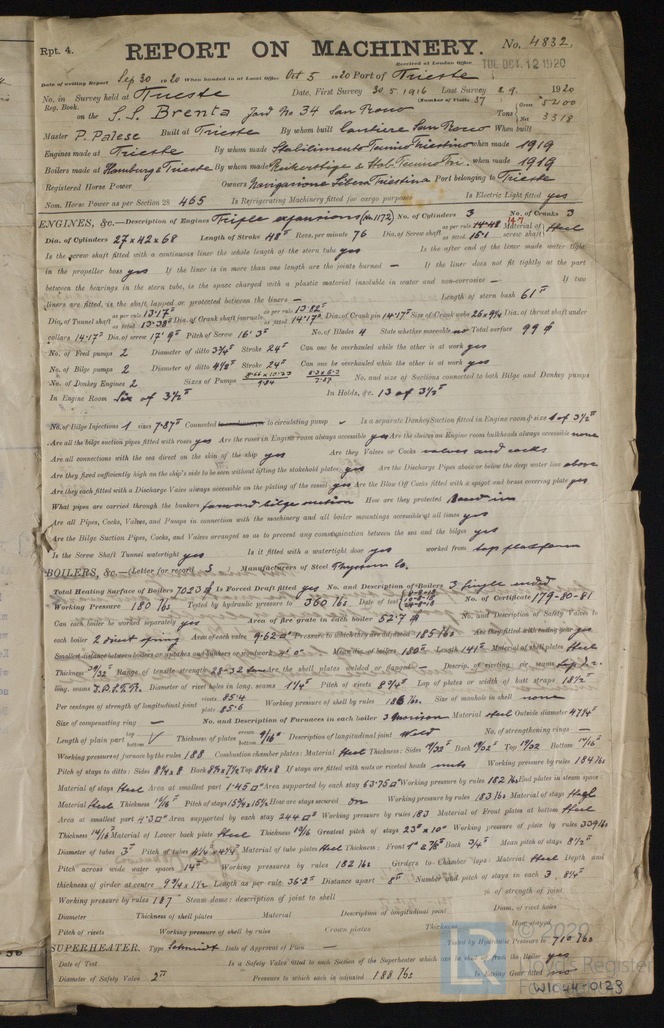 Rpt. 4.
REPORT ON MACHINERY.
No. 4832.
Received at London Office TUE. OCT. 12 1920
Date of writing Report Sep 30 1920 When handed in at Local Office Oct 5 1920 Port of Trieste
No. in Survey held at Trieste Date, First Survey 30.5.1916 Last Survey 1920
Reg. Book. (Number of Visits 37
on the S.S. Brenta Yard No 34 San Rocco Tons Gross 5400 Net 3318
Master P. Palese Built at Trieste By whom built Cantiere San Rocco When built
Engines made at Trieste By whom made Stabilimento Tecnico Triestino when made 1919
Boilers made at Hamburg & Trieste By whom made when made 1919
Registered Horse Power Owners Navigazione Libera Triestina Port belonging to Trieste
Nom. Horse Power as per Section 28 465 Is Refrigerating Machinery fitted for cargo purposes Is Electric Light fitted yes
ENGINES, &c.—Description of Engines Triple expansion (No 1172) No. of Cylinders 3 No. of Cranks 3
Dia. of Cylinders 27 x 42 x 68 Length of Stroke 48" Revs. per minute 76 Dia. of Screw shaft as per rule 14.48 as fitted 15.1 Material of screw shaft Steel
Is the screw shaft fitted with a continuous liner the whole length of the stern tube yes Is the after end of the liner made water tight
in the propeller boss yes If the liner is in more than one length are the joints burned — If the liner does not fit tightly at the part
between the bearings in the stern tube, is the space charged with a plastic material insoluble in water and non-corrosive — If two
liners are fitted, is the shaft lapped or protected between the liners — Length of stern bush 61"
Dia. of Tunnel shaft as per rule 13.17" as fitted 13.38" Dia. of Crank shaft journals as per rule 13.82" as fitted 14.17" Dia. of Crank pin 14.17" Size of Crank webs 26 x 9 1/4 Dia. of thrust shaft under
collars 14.17" Dia. of screw 17' 9" Pitch of Screw 16' 3" No. of Blades 4 State whether moveable no Total surface 99
No. of Feed pumps 2 Diameter of ditto 3 3/4" Stroke 24" Can one be overhauled while the other is at work yes
No. of Bilge pumps 2 Diameter of ditto 4 1/2" Stroke 24" Can one be overhauled while the other is at work yes
No. of Donkey Engines 2 Sizes of Pumps No. and size of Suctions connected to both Bilge and Donkey pumps
In Engine Room Six of 3 1/2" In Holds, &c. 13 of 3 1/2"
No. of Bilge Injections 1 sizes 7.87" Connected to circulating pump ✓ Is a separate Donkey Suction fitted in Engine room & size 1 of 3 1/2"
Are all the bilge suction pipes fitted with roses yes Are the roses in Engine room always accessible yes Are the sluices on Engine room bulkheads always accessible none
Are all connections with the sea direct on the skin of the ship yes Are they Valves or Cocks valves and cocks
Are they fixed sufficiently high on the ship's side to be seen without lifting the stokehold plates yes Are the Discharge Pipes above or below the deep water line above
Are they each fitted with a Discharge Valve always accessible on the plating of the vessel yes Are the Blow Off Cocks fitted with a spigot and brass covering plate yes
What pipes are carried through the bunkers forward bilge suction How are they protected
Are all Pipes, Cocks, Valves, and Pumps in connection with the machinery and all boiler mountings accessible at all times yes
Are the Bilge Suction Pipes, Cocks, and Valves arranged so as to prevent any communication between the sea and the bilges yes
Is the Screw Shaft Tunnel watertight yes Is it fitted with a watertight door yes worked from top platform
BOILERS, &c.—(Letter for record S) Manufacturers of Steel Thyssen Co.
Total Heating Surface of Boilers 7023 Is Forced Draft fitted yes No. and Description of Boilers 3 Single ended
Working Pressure 180 lbs Tested by hydraulic pressure to 360 lbs Date of test No. of Certificate 179-80-81
Can each boiler be worked separately yes Area of fire grate in each boiler 52.7 No. and Description of Safety Valves to
each boiler 2 direct spring Area of each valve 9.62 Pressure to which they are adjusted 185 lbs Are they fitted with easing gear yes
Smallest distance between boilers or uptakes and bunkers or woodwork Mean dia. of boilers 180" Length 141" Material of shell plates Steel
Thickness Range of tensile strength 28-32 tons Are the shell plates welded or flanged — Descrip. of riveting: cir. seams
long. seams Diameter of rivet holes in long. seams 1 1/4" Pitch of rivets 8 3/4" Lap of plates or width of butt straps 18 1/2"
Per centages of strength of longitudinal joint rivets 85.4 plate 85.6 Working pressure of shell by rules Size of manhole in shell none
Size of compensating ring — No. and Description of Furnaces in each boiler 3 Morison Material Steel Outside diameter 47 1/4"
Length of plain part top bottom ✓ Thickness of plates crown bottom 9/16" Description of longitudinal joint Weld No. of strengthening rings —
Working pressure of furnace by the rules 188 Combustion chamber plates: Material Steel Thickness: Sides Back Top Bottom
Pitch of stays to ditto: Sides Back Top If stays are fitted with nuts or riveted heads nuts Working pressure by rules 184 lbs
Material of stays Steel Area at smallest part 1.45 Area supported by each stay 63.75 Working pressure by rules 182 lbs End plates in steam space:
Material Steel Thickness Pitch of stays How are stays secured Working pressure by rules 183 lbs Material of stays Steel
Area at smallest part Area supported by each stay 244 Working pressure by rules 183 Material of Front plates at bottom Steel
Thickness Material of Lower back plate Steel Thickness Greatest pitch of stays 23" x 10" Working pressure of plate by rules 339 lbs
Diameter of tubes 3" Pitch of tubes Material of tube plates Steel Thickness: Front Back 3/4" Mean pitch of stays 8 1/2"
Pitch across wide water spaces 14" Working pressures by rules 182 lbs Girders to Chamber tops: Material Steel Depth and
thickness of girder at centre Length as per rule 36.2" Distance apart 8" Number and pitch of stays in each 3, 8 1/4"
Working pressure by rules 187 Steam dome: description of joint to shell % of strength of joint
Diameter Thickness of shell plates Material Description of longitudinal joint Diam. of rivet holes
Pitch of rivets Working pressure of shell by rules Crown plates Thickness How stayed
SUPERHEATER. Type Schmidt Date of Approval of Plan — Tested by Hydraulic Pressure to 710 lbs
Date of Test Is a Safety Valve fitted to each Section of the Superheater which can be shut off from the Boiler yes
Diameter of Safety Valve 2" Pressure to which each is adjusted 188 lbs Is Easing Gear fitted
© 2020
LR
Lloyd's Register
W1044-0123